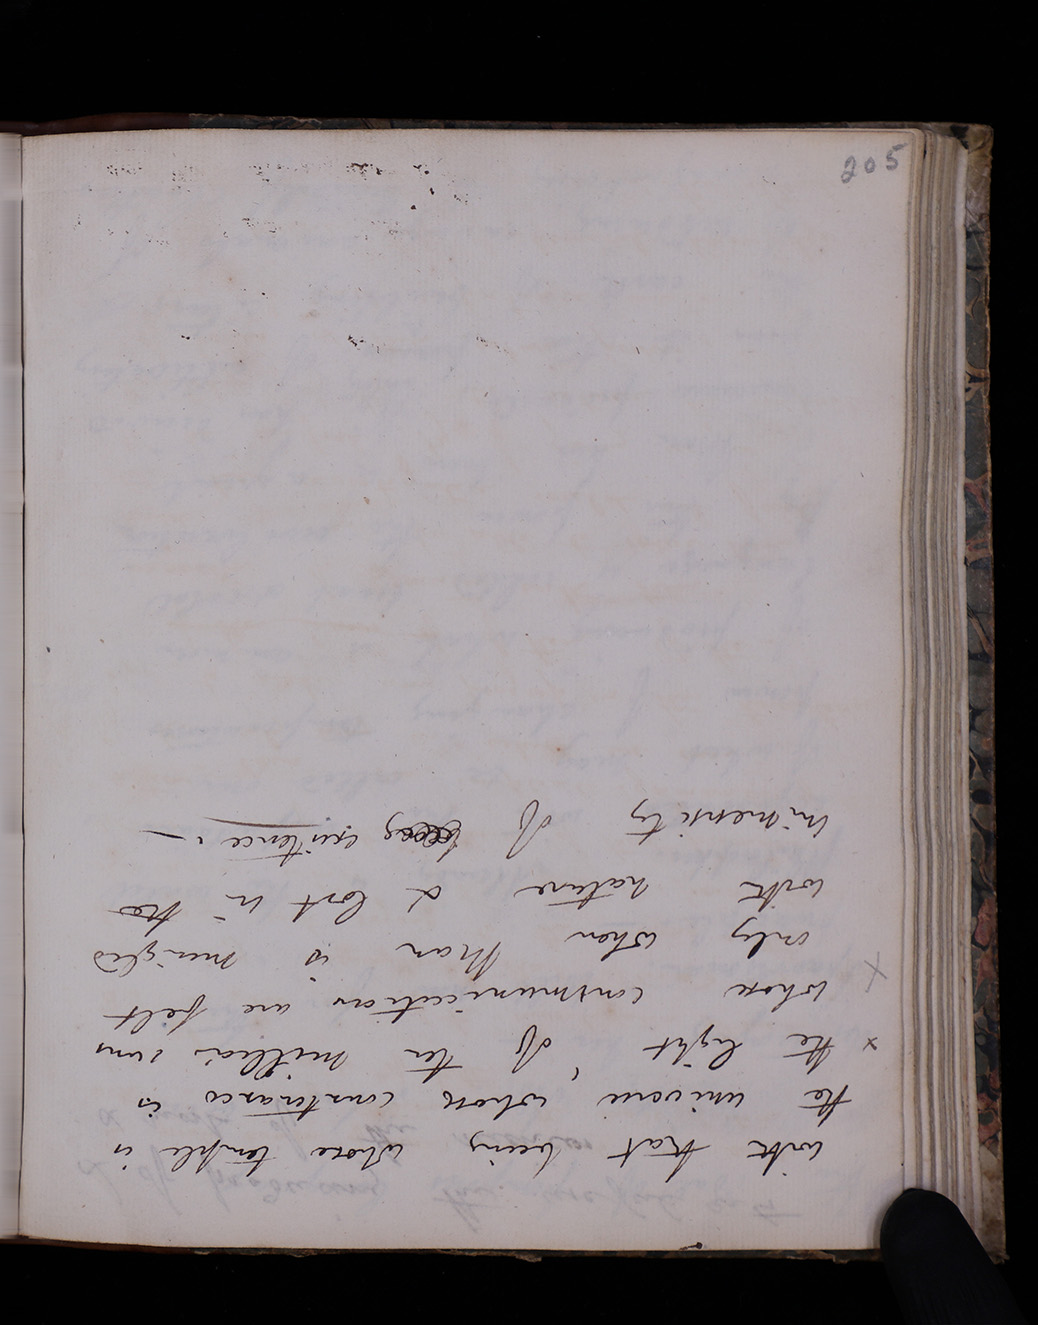 205
with that being whose temple is
the universe whose countenance is
x the light of ten million suns
whose communications are felt
x only when Man is mingled
with nature & lost in the
immensity of being existence. —